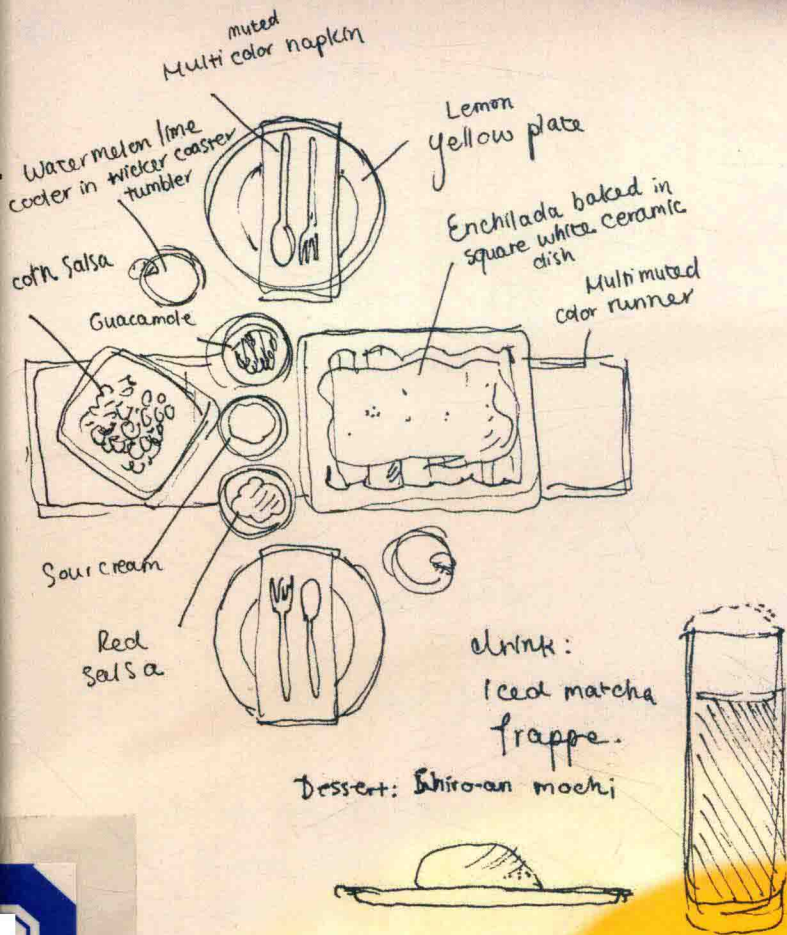 muted
Multi color napkin
Lemon
yellow plate
Watermelon lime
cooler in wicker coaster
tumbler
Enchilada baked in
square white ceramic
dish
corn salsa
Multi muted
color runner
Guacamole
Sour cream
Red
salsa
drink:
Iced matcha
frappe.
Dessert: Shiro-an mochi